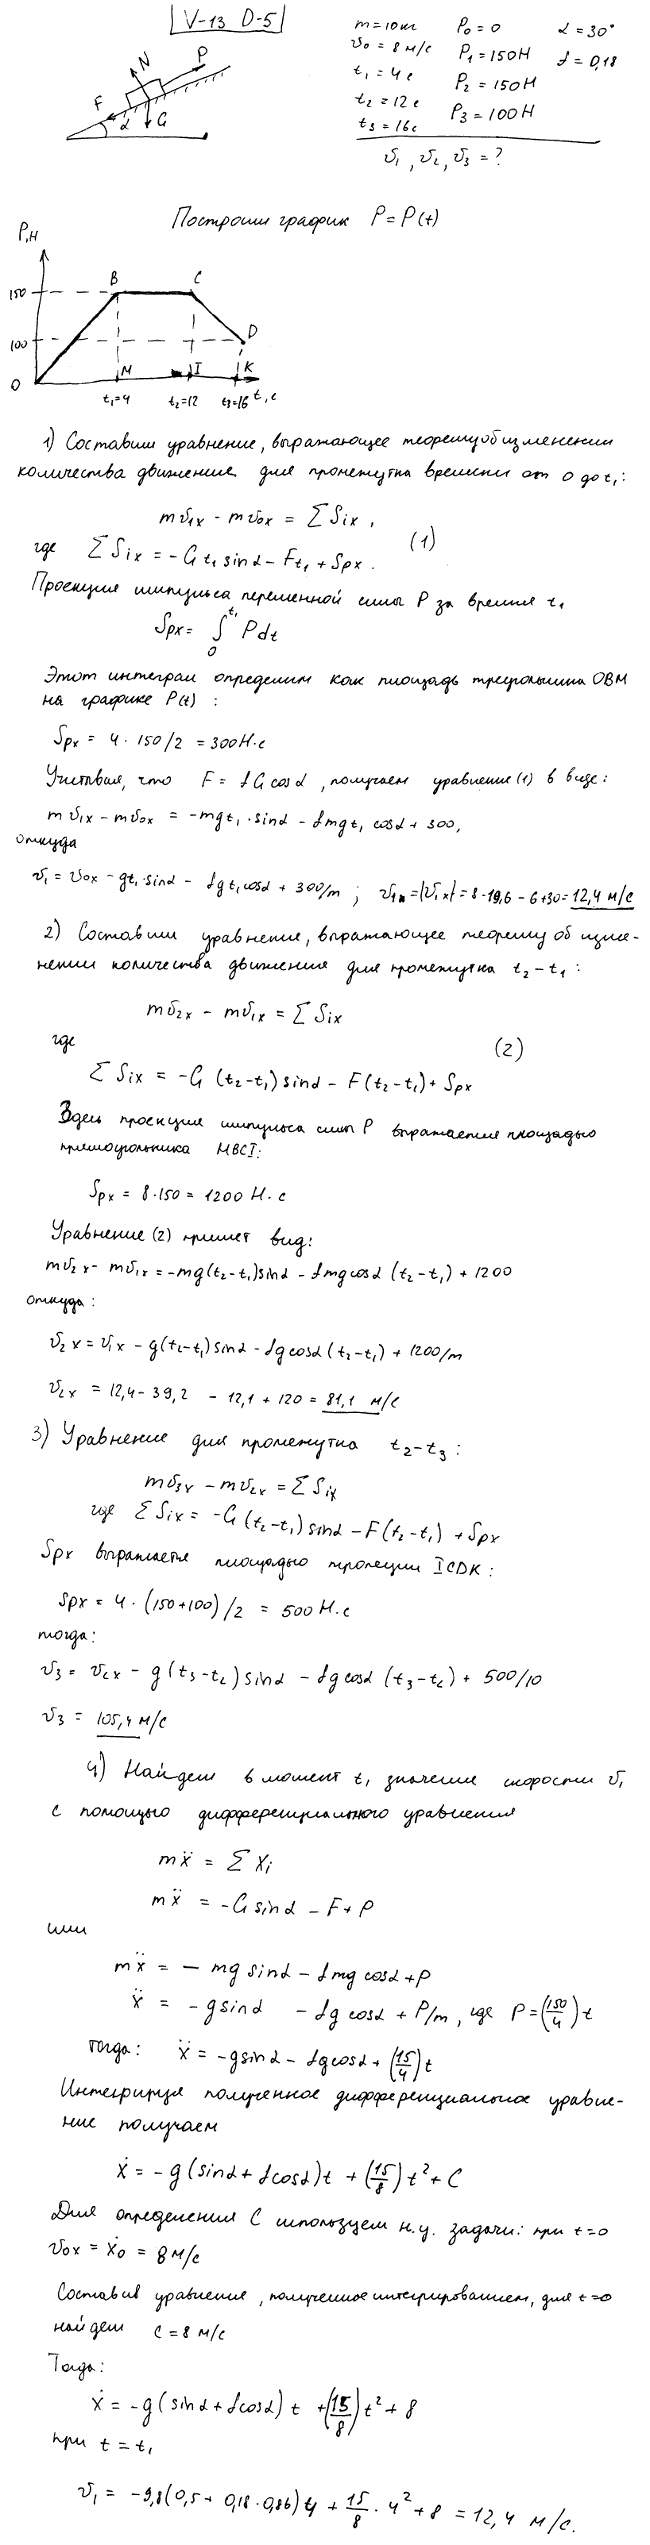 V-13 D-5
m=10кг P₀=0 α=30°
v₀=8м/с P₁=150Н f=0,18
t₁=4с P₂=150Н
t₂=12с P₃=100Н
t₃=16с
v₁, v₂, v₃=?
N P
F α G
Построим график P=P(t)
P,Н
B C
150
100 D
M I K
0 t₁=4 t₂=12 t₃=16 t,с
1) Составим уравнение, выражающее теорему об изменении
количества движения для промежутка времени от 0 до t₁:
mv₁x - mv₀x = ΣSix,
где ΣSix = -Gt₁sinα - Ft₁ + Spx. (1)
Проекция импульса переменной силы P за время t₁
Spx = ∫₀^t₁ Pdt
Этот интеграл определим как площадь треугольника OBM
на графике P(t):
Spx = 4·150/2 = 300Н·с
Учитывая, что F = fGcosα, получаем уравнение (1) в виде:
mv₁x - mv₀x = -mgt₁·sinα - fmgt₁cosα + 300,
откуда
v₁ = v₀x - gt₁·sinα - fgt₁cosα + 300/m; v₁ₓ=|v₁x|=8-19,6-6+30=12,4 м/с
2) Составим уравнение, выражающее теорему об изме-
нении количества движения для промежутка t₂-t₁:
mv₂x - mv₁x = ΣSix
где (2)
ΣSix = -G(t₂-t₁)sinα - F(t₂-t₁) + Spx
Здесь проекция импульса силы P выражается площадью
прямоугольника MBCI:
Spx = 8·150 = 1200 Н·с
Уравнение (2) примет вид:
mv₂x - mv₁x = -mg(t₂-t₁)sinα - fmgcosα(t₂-t₁) + 1200
откуда:
v₂x = v₁x - g(t₂-t₁)sinα - fgcosα(t₂-t₁) + 1200/m
v₂x = 12,4 - 39,2 - 12,1 + 120 = 81,1 м/с
3) Уравнение для промежутка t₂-t₃:
mv₃x - mv₂x = ΣSix
где ΣSix = -G(t₂-t₁)sinα - F(t₂-t₁) + Spx
Spx выражается площадью трапеции ICDK:
Spx = 4·(150+100)/2 = 500Н·с
тогда:
v₃ = v₂x - g(t₃-t₂)sinα - fgcosα(t₃-t₂) + 500/10
v₃ = 105,4 м/с
4) Найдем в момент t₁ значение скорости v₁
с помощью дифференциального уравнения
mẍ = ΣXi
mẍ = -Gsinα - F + P
или
mẍ = -mgsinα - fmgcosα + P
ẍ = -gsinα - fgcosα + P/m, где P=(150/4)t
Тогда: ẍ = -gsinα - fgcosα + (15/4)t
Интегрируя полученное дифференциальное уравне-
ние получаем
ẋ = -g(sinα + fcosα)t + (15/8)t² + C
Для определения C используем н.у. задачи: при t=0
v₀x = ẋ₀ = 8м/с
Составив уравнения, полученное интегрированием, для t=0
найдем C=8 м/с
Тогда:
ẋ = -g(sinα + fcosα)t + (15/8)t² + 8
при t=t₁
v₁ = -9,8(0,5 + 0,18·0,86)4 + 15/8·4² + 8 = 12,4 м/с.